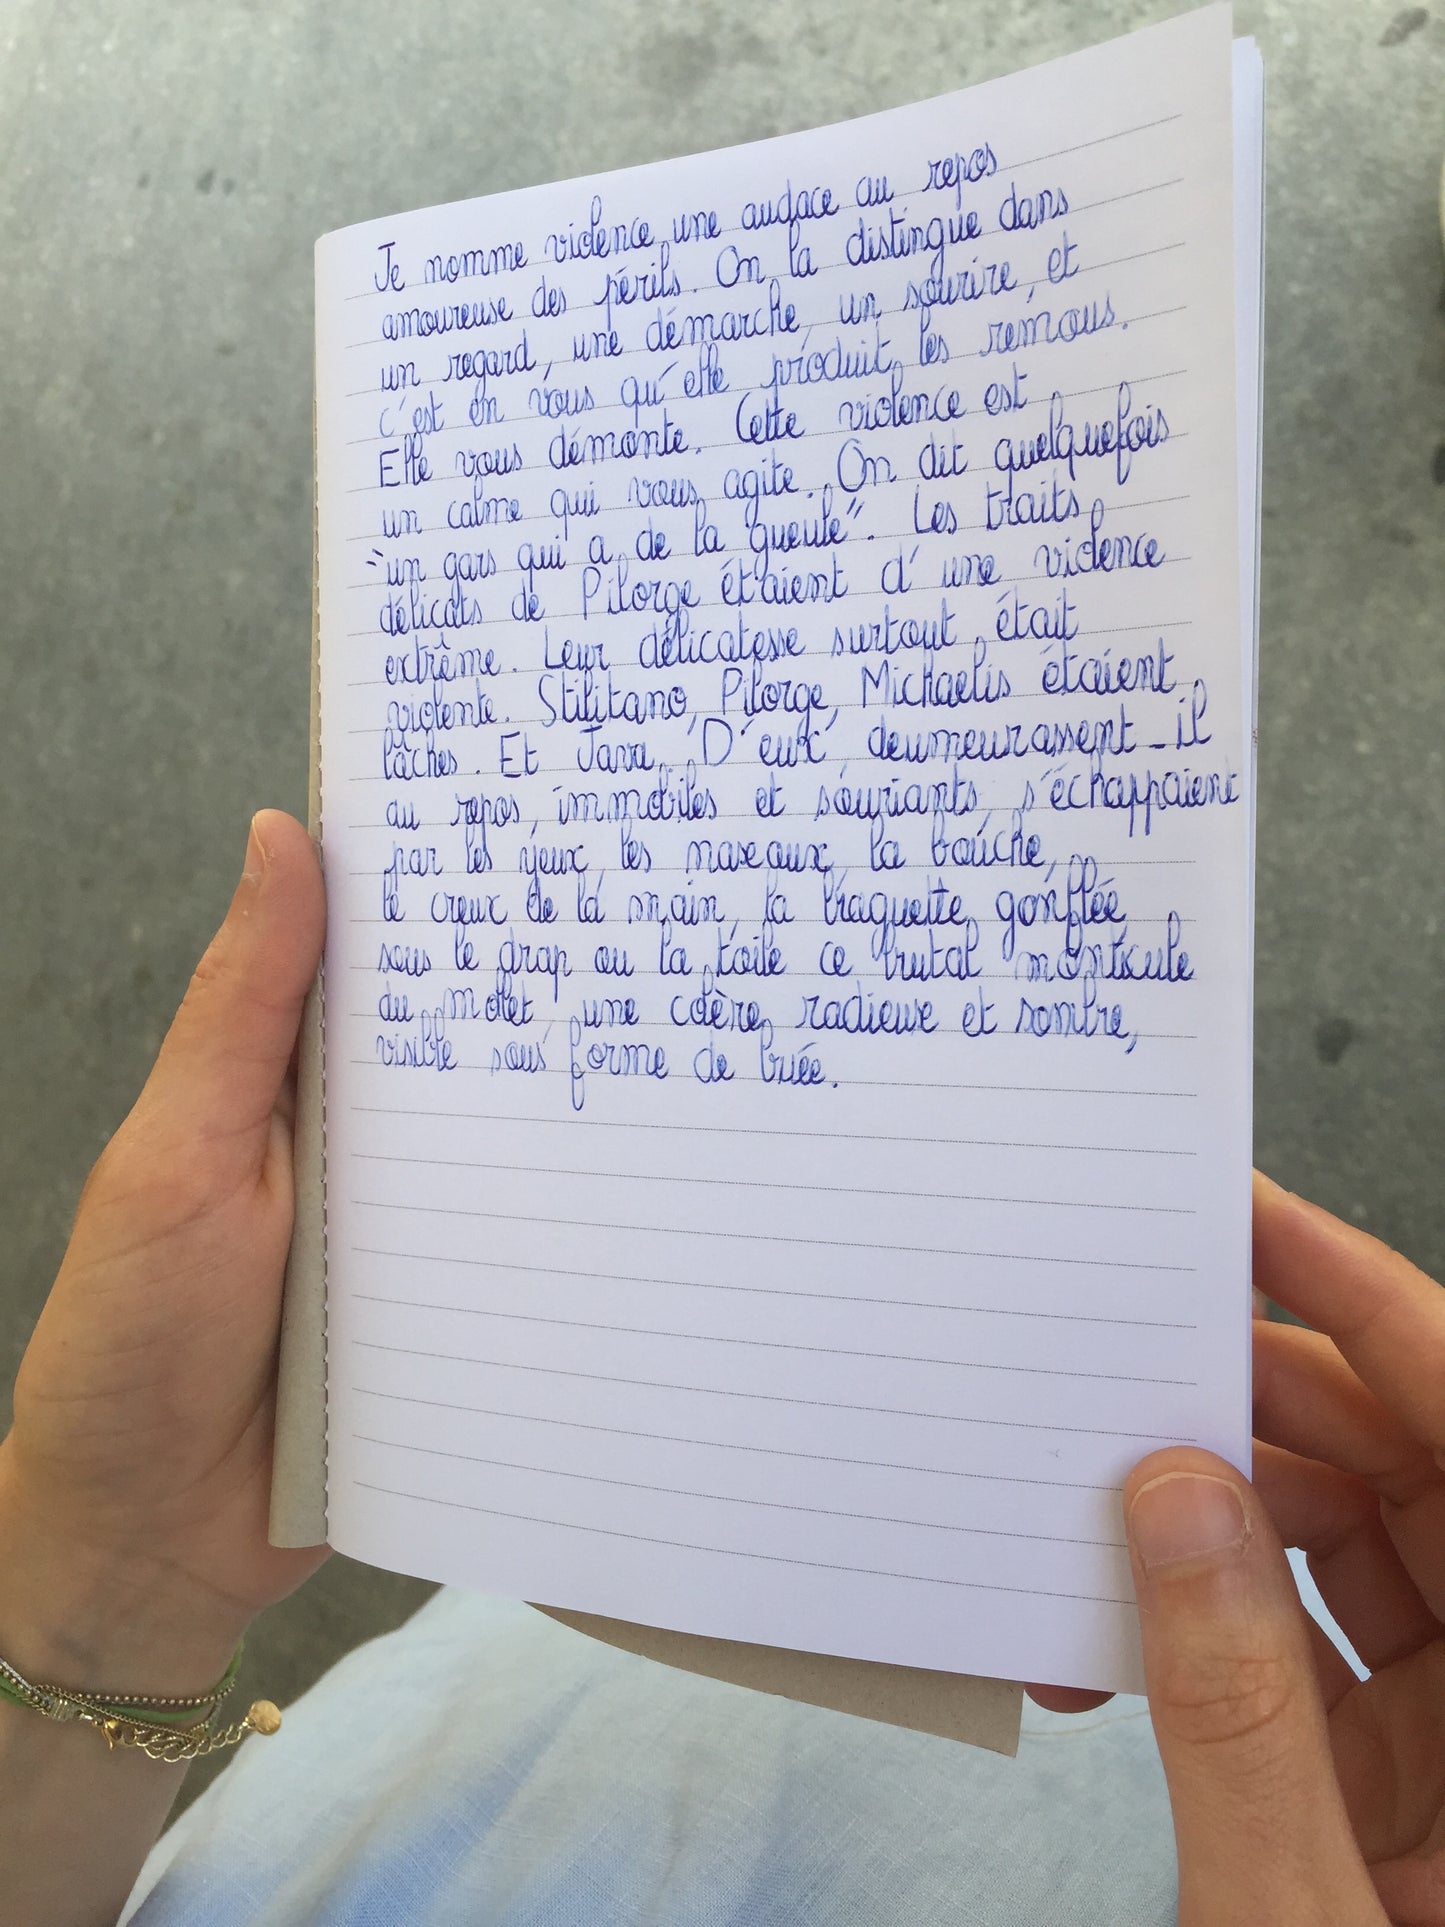 Je nomme violence une audace au repos
amoureuse des périls. On la distingue dans
un regard, une démarche, un sourire, et
c'est en vous qu'elle produit les remous.
Elle vous démonte. Cette violence est
un calme qui vous agite. On dit quelquefois
"un gars qui a de la gueule". Les traits
délicats de Pilorge étaient d'une violence
extrême. Leur délicatesse surtout était
violente. Stilitano, Pilorge, Michaelis étaient
lâches. Et Java. D'eux, deumeurassent-il
au repos, immobiles et souriants, s'échappaient
par les yeux, les naseaux, la bouche,
le creux de la main, la braguette gonflée
sous le drap ou la toile ce brutal monticule
du mollet, une colère radieuse et sombre,
visible sous forme de buée.